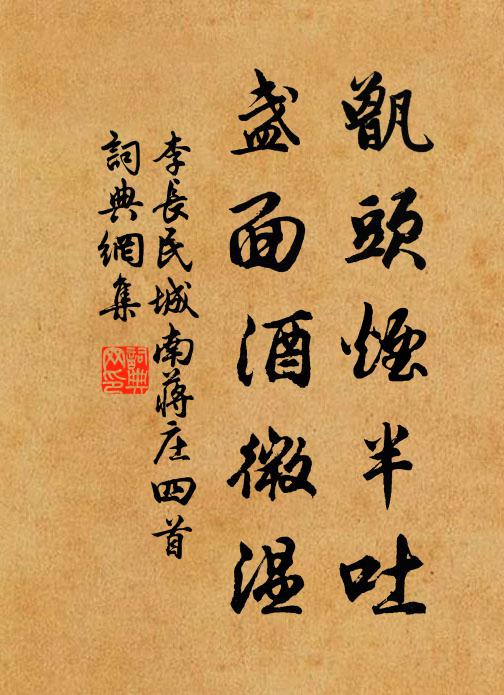 甑頭煙半吐
盏面酒微温
李長民城南蔣庄四首
詞典網集
詞典网印